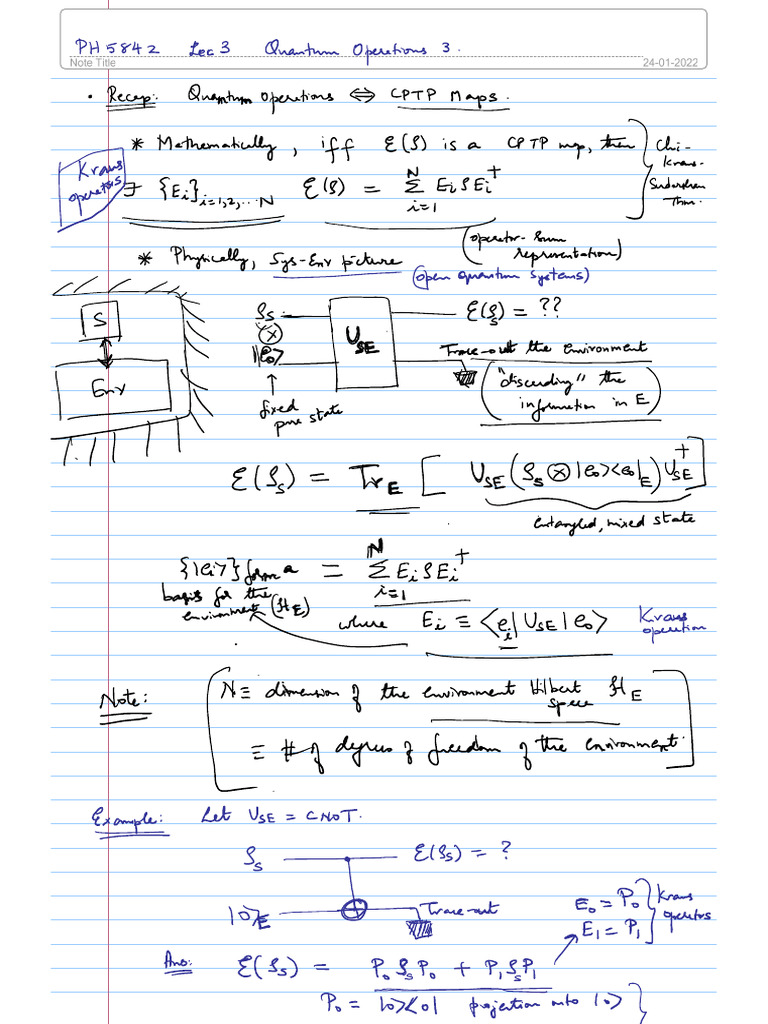 PH5842 Lec 3 Quantum Operations 3.
Note Title
24-01-2022
• Recap: Quantum Operations ⇔ CPTP Maps.
* Mathematically, iff ℰ(ρ) is a CPTP map, then
Kraus operators
∃ {E_i}_{i=1,2,...N} ℰ(ρ) = Σ_{i=1}^{N} E_i ρ E_i^†
Choi-
Kraus-
Sudarshan
Thm.
(operator-sum representation)
* Physically, Sys-Env picture
(open quantum systems)
S
Env
ρ_S ℰ(ρ_S) = ??
⊗
U_SE
|e_0> Trace-out the environment
↑
fixed
pure state
("discarding" the information in E)
ℰ(ρ_S) = Tr_E [ U_SE (ρ_S ⊗ |e_0><e_0|_E) U_SE^† ]
entangled, mixed state
{|e_i>} form a basis for the environment (ℋ_E)
= Σ_{i=1}^{N} E_i ρ E_i^†
where E_i ≡ <e_i| U_SE |e_0> Kraus operation
Note: [ N ≡ dimension of the environment Hilbert space ℋ_E
≡ # of degrees of freedom of the environment. ]
Example: Let U_SE = CNOT.
ρ_S ℰ(ρ_S) = ?
|0>_E Trace-out
E_0 = P_0
E_1 = P_1
Kraus operators
Ans: ℰ(ρ_S) = P_0 ρ_S P_0 + P_1 ρ_S P_1
P_0 = |0><0| projection into |0>